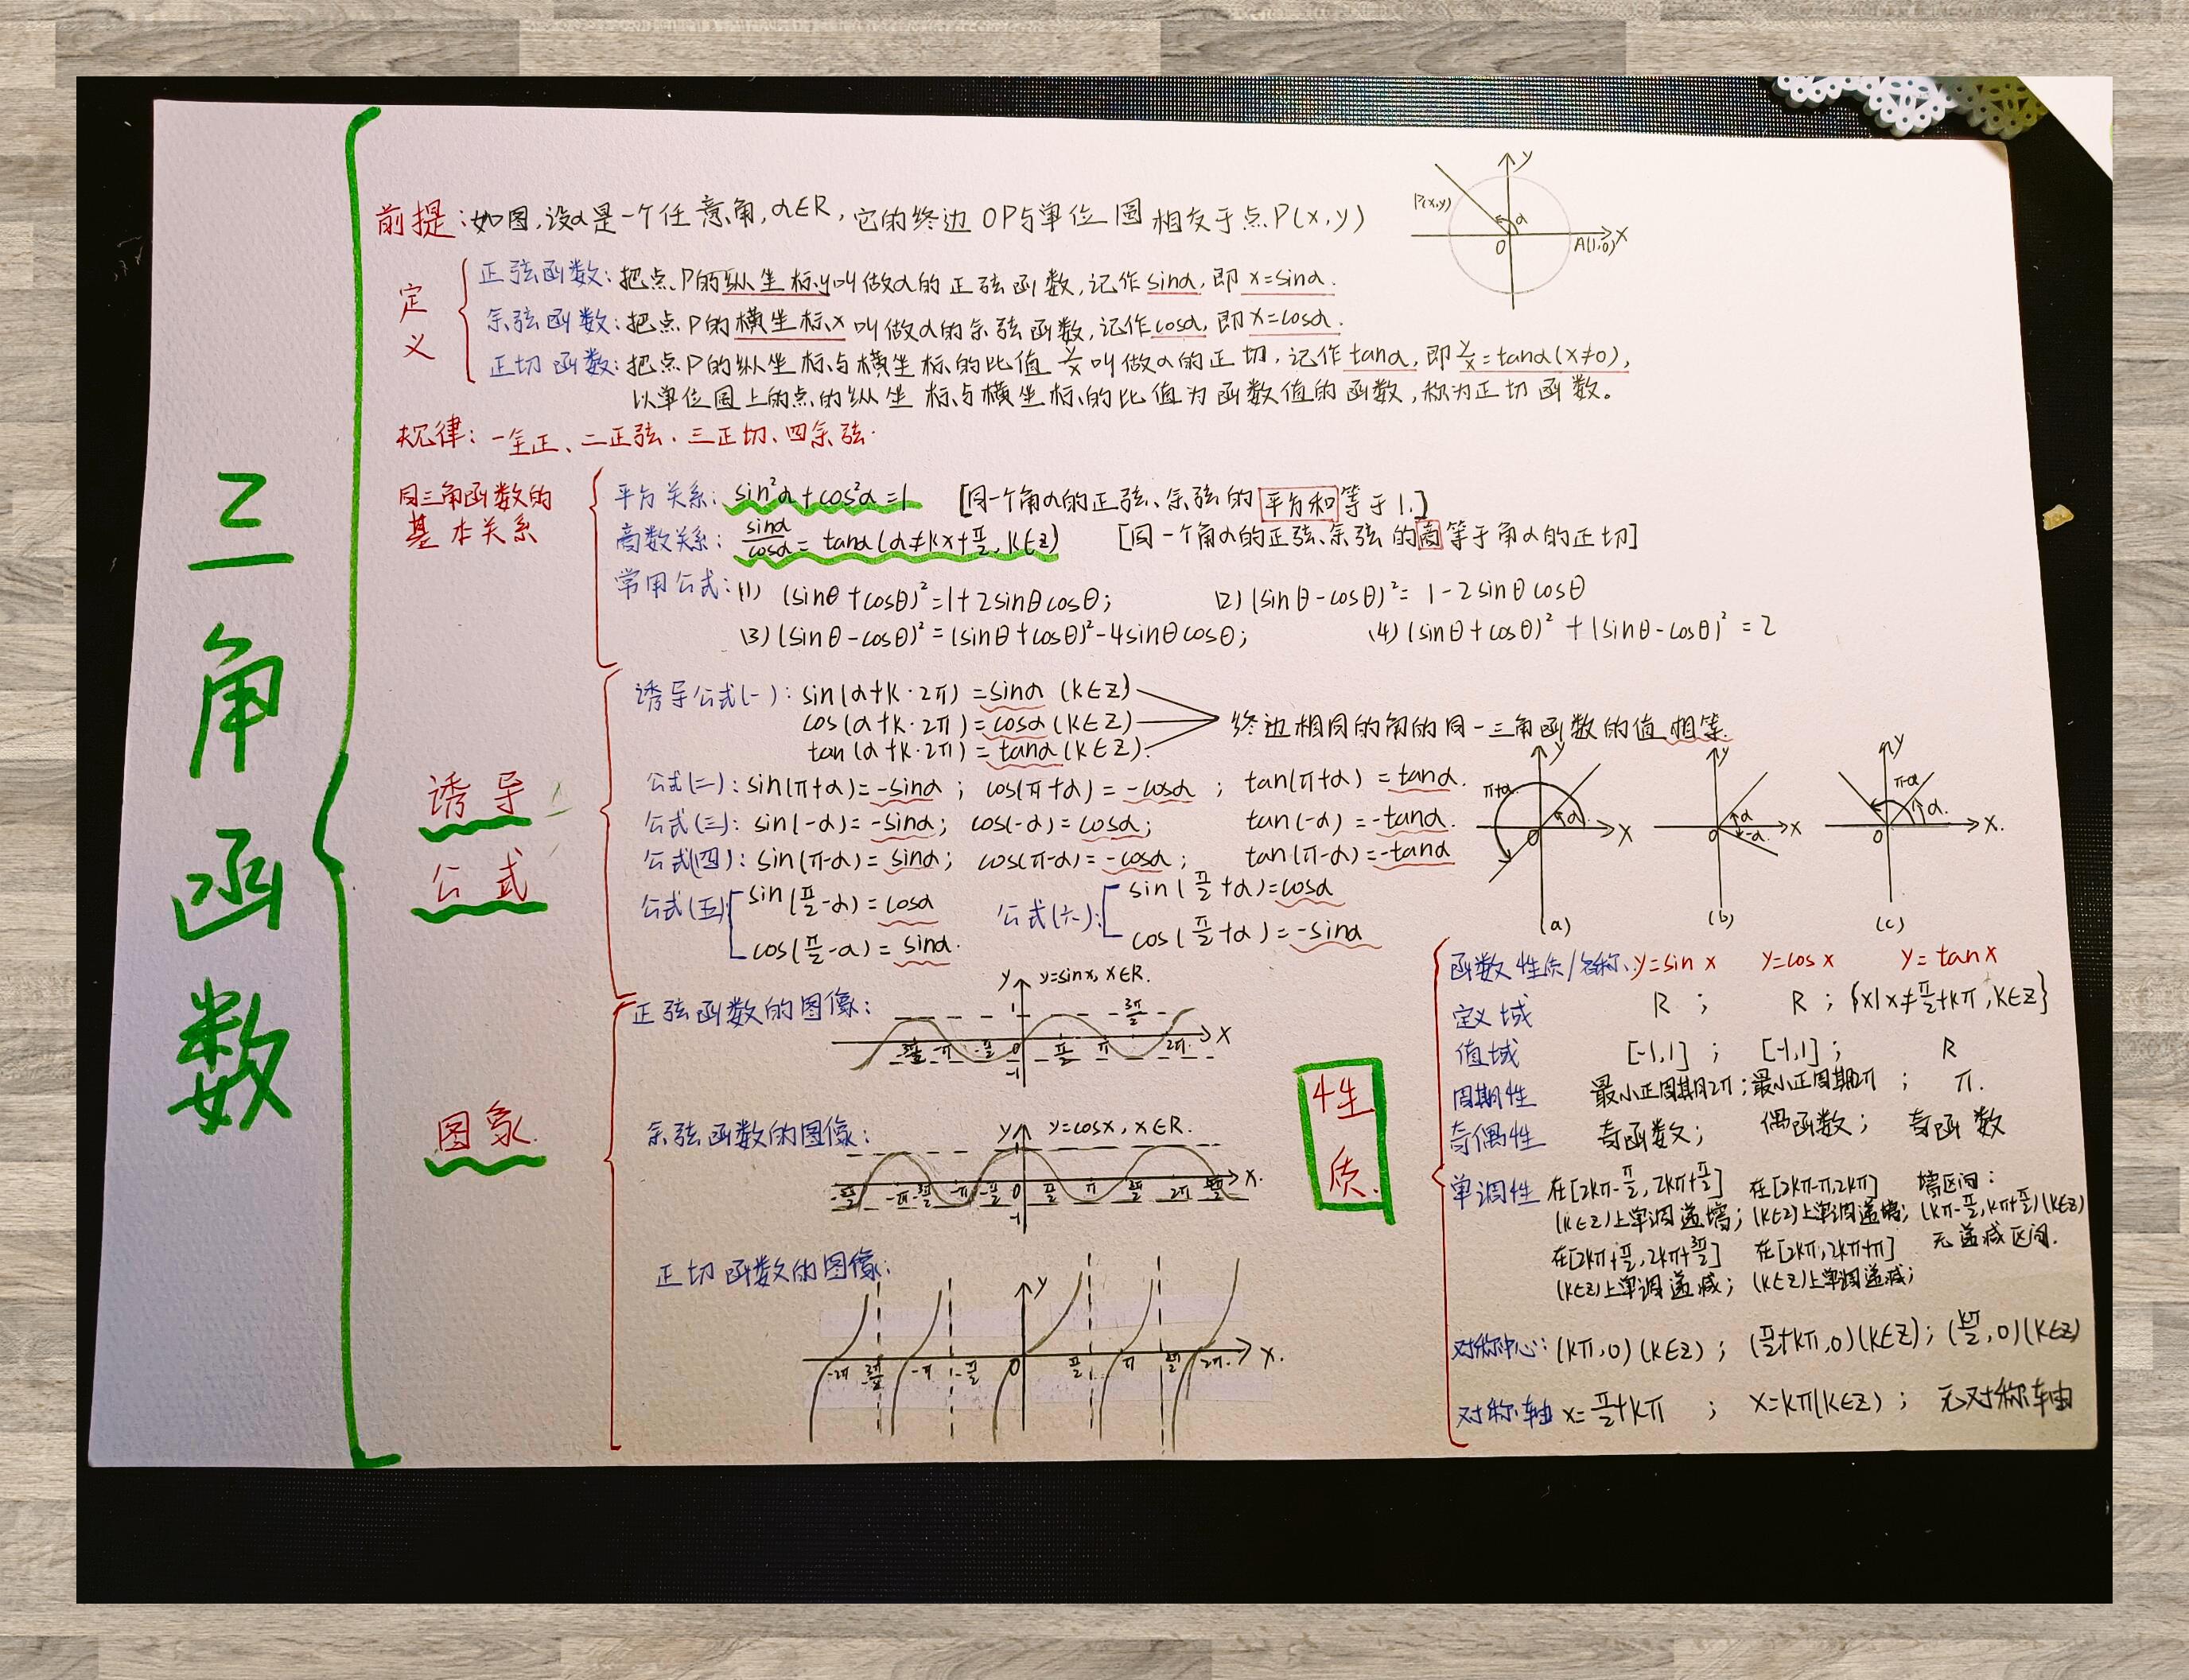 三角函数
前提:如图,设α是一个任意角,α∈R,它的终边OP与单位圆相交于点P(x,y)
P(x,y)
y
α
O
A(1,0)
x
定义
正弦函数:把点P的纵坐标y叫做α的正弦函数,记作sinα,即x=sinα.
余弦函数:把点P的横坐标x叫做α的余弦函数,记作cosα,即x=cosα.
正切函数:把点P的纵坐标与横坐标的比值y/x叫做α的正切,记作tanα,即y/x=tanα(x≠0),
以单位圆上的点的纵坐标与横坐标的比值为函数值的函数,称为正切函数。
规律:一全正、二正弦、三正切、四余弦.
同三角函数的
基本关系
平方关系:sin²α+cos²α=1 [同一个角α的正弦、余弦的平方和等于1.]
商数关系:sinα/cosα=tanα(α≠kx+π/2,k∈Z) [同一个角α的正弦、余弦的商等于角α的正切]
常用公式:(1) (sinθ+cosθ)²=1+2sinθcosθ; (2)(sinθ-cosθ)²=1-2sinθcosθ
(3)(sinθ-cosθ)²=(sinθ+cosθ)²-4sinθcosθ; (4)(sinθ+cosθ)²+(sinθ-cosθ)²=2
诱导
公式
诱导公式(一):sin(α+k·2π)=sinα (k∈Z)
cos(α+k·2π)=cosα(k∈Z)
tan(α+k·2π)=tanα(k∈Z)
终边相同的角的同一三角函数的值相等.
公式(二):sin(π+α)=-sinα; cos(π+α)=-cosα; tan(π+α)=tanα.
公式(三):sin(-α)=-sinα; cos(-α)=cosα; tan(-α)=-tanα.
公式(四):sin(π-α)=sinα; cos(π-α)=-cosα; tan(π-α)=-tanα
公式(五):sin(π/2-α)=cosα
cos(π/2-α)=sinα.
公式(六):sin(π/2+α)=cosα
cos(π/2+α)=-sinα
y
π+α
α
O
x
(a)
y
α
-α
O
x
(b)
y
π-α
α
O
x.
(c)
图象
正弦函数的图像:
y y=sinx,x∈R.
1
3π/2
x
-3π/2 -π -π/2 0 π/2 π 2π
-1
余弦函数的图像:
y y=cosx,x∈R.
1
x.
-5π/2 -2π -3π/2 -π -π/2 0 π/2 π 3π/2 2π 5π/2
-1
正切函数的图像:
y
x.
-2π -3π/2 -π -π/2 0 π/2 π 3π/2 2π
性质
函数性质/名称 y=sin x y=cos x y=tan x
定义域 R ; R ; {x|x≠π/2+kπ,k∈Z}
值域 [-1,1] ; [-1,1] ; R
周期性 最小正周期2π;最小正周期2π ; π.
奇偶性 奇函数; 偶函数; 奇函数
单调性 在[2kπ-π/2,2kπ+π/2] 在[2kπ-π,2kπ] 增区间:
(k∈Z)上单调递增; (k∈Z)上单调递增; (kπ-π/2,kπ+π/2)(k∈Z)
在[2kπ+π/2,2kπ+3π/2] 在[2kπ,2kπ+π] 无递减区间.
(k∈Z)上单调递减; (k∈Z)上单调递减;
对称中心:(kπ,0)(k∈Z); (π/2+kπ,0)(k∈Z); (kπ/2,0)(k∈Z)
对称轴 x=π/2+kπ ; x=kπ(k∈Z) ; 无对称轴